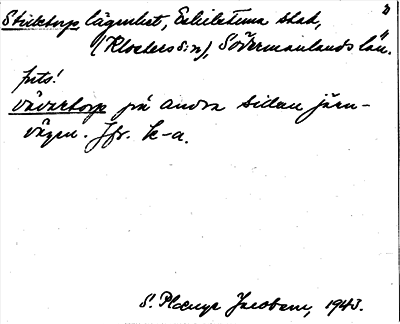 Sticktorp lägenhet, Eskilstuna stad,
(Klosters s:n), Södermanlands län.
puts!
Vävartorp på andra sidan järn-
vägen. Jfr. k-a.
S. Jacobson, 1943.